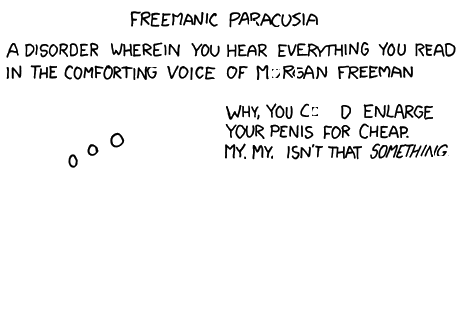 FREEMANIC PARACUSIA
A DISORDER WHEREIN YOU HEAR EVERYTHING YOU READ
IN THE COMFORTING VOICE OF MORGAN FREEMAN
WHY, YOU ENLARGE
YOUR PENIS FOR CHEAP.
MY. MY. ISN'T THAT SOMETHING